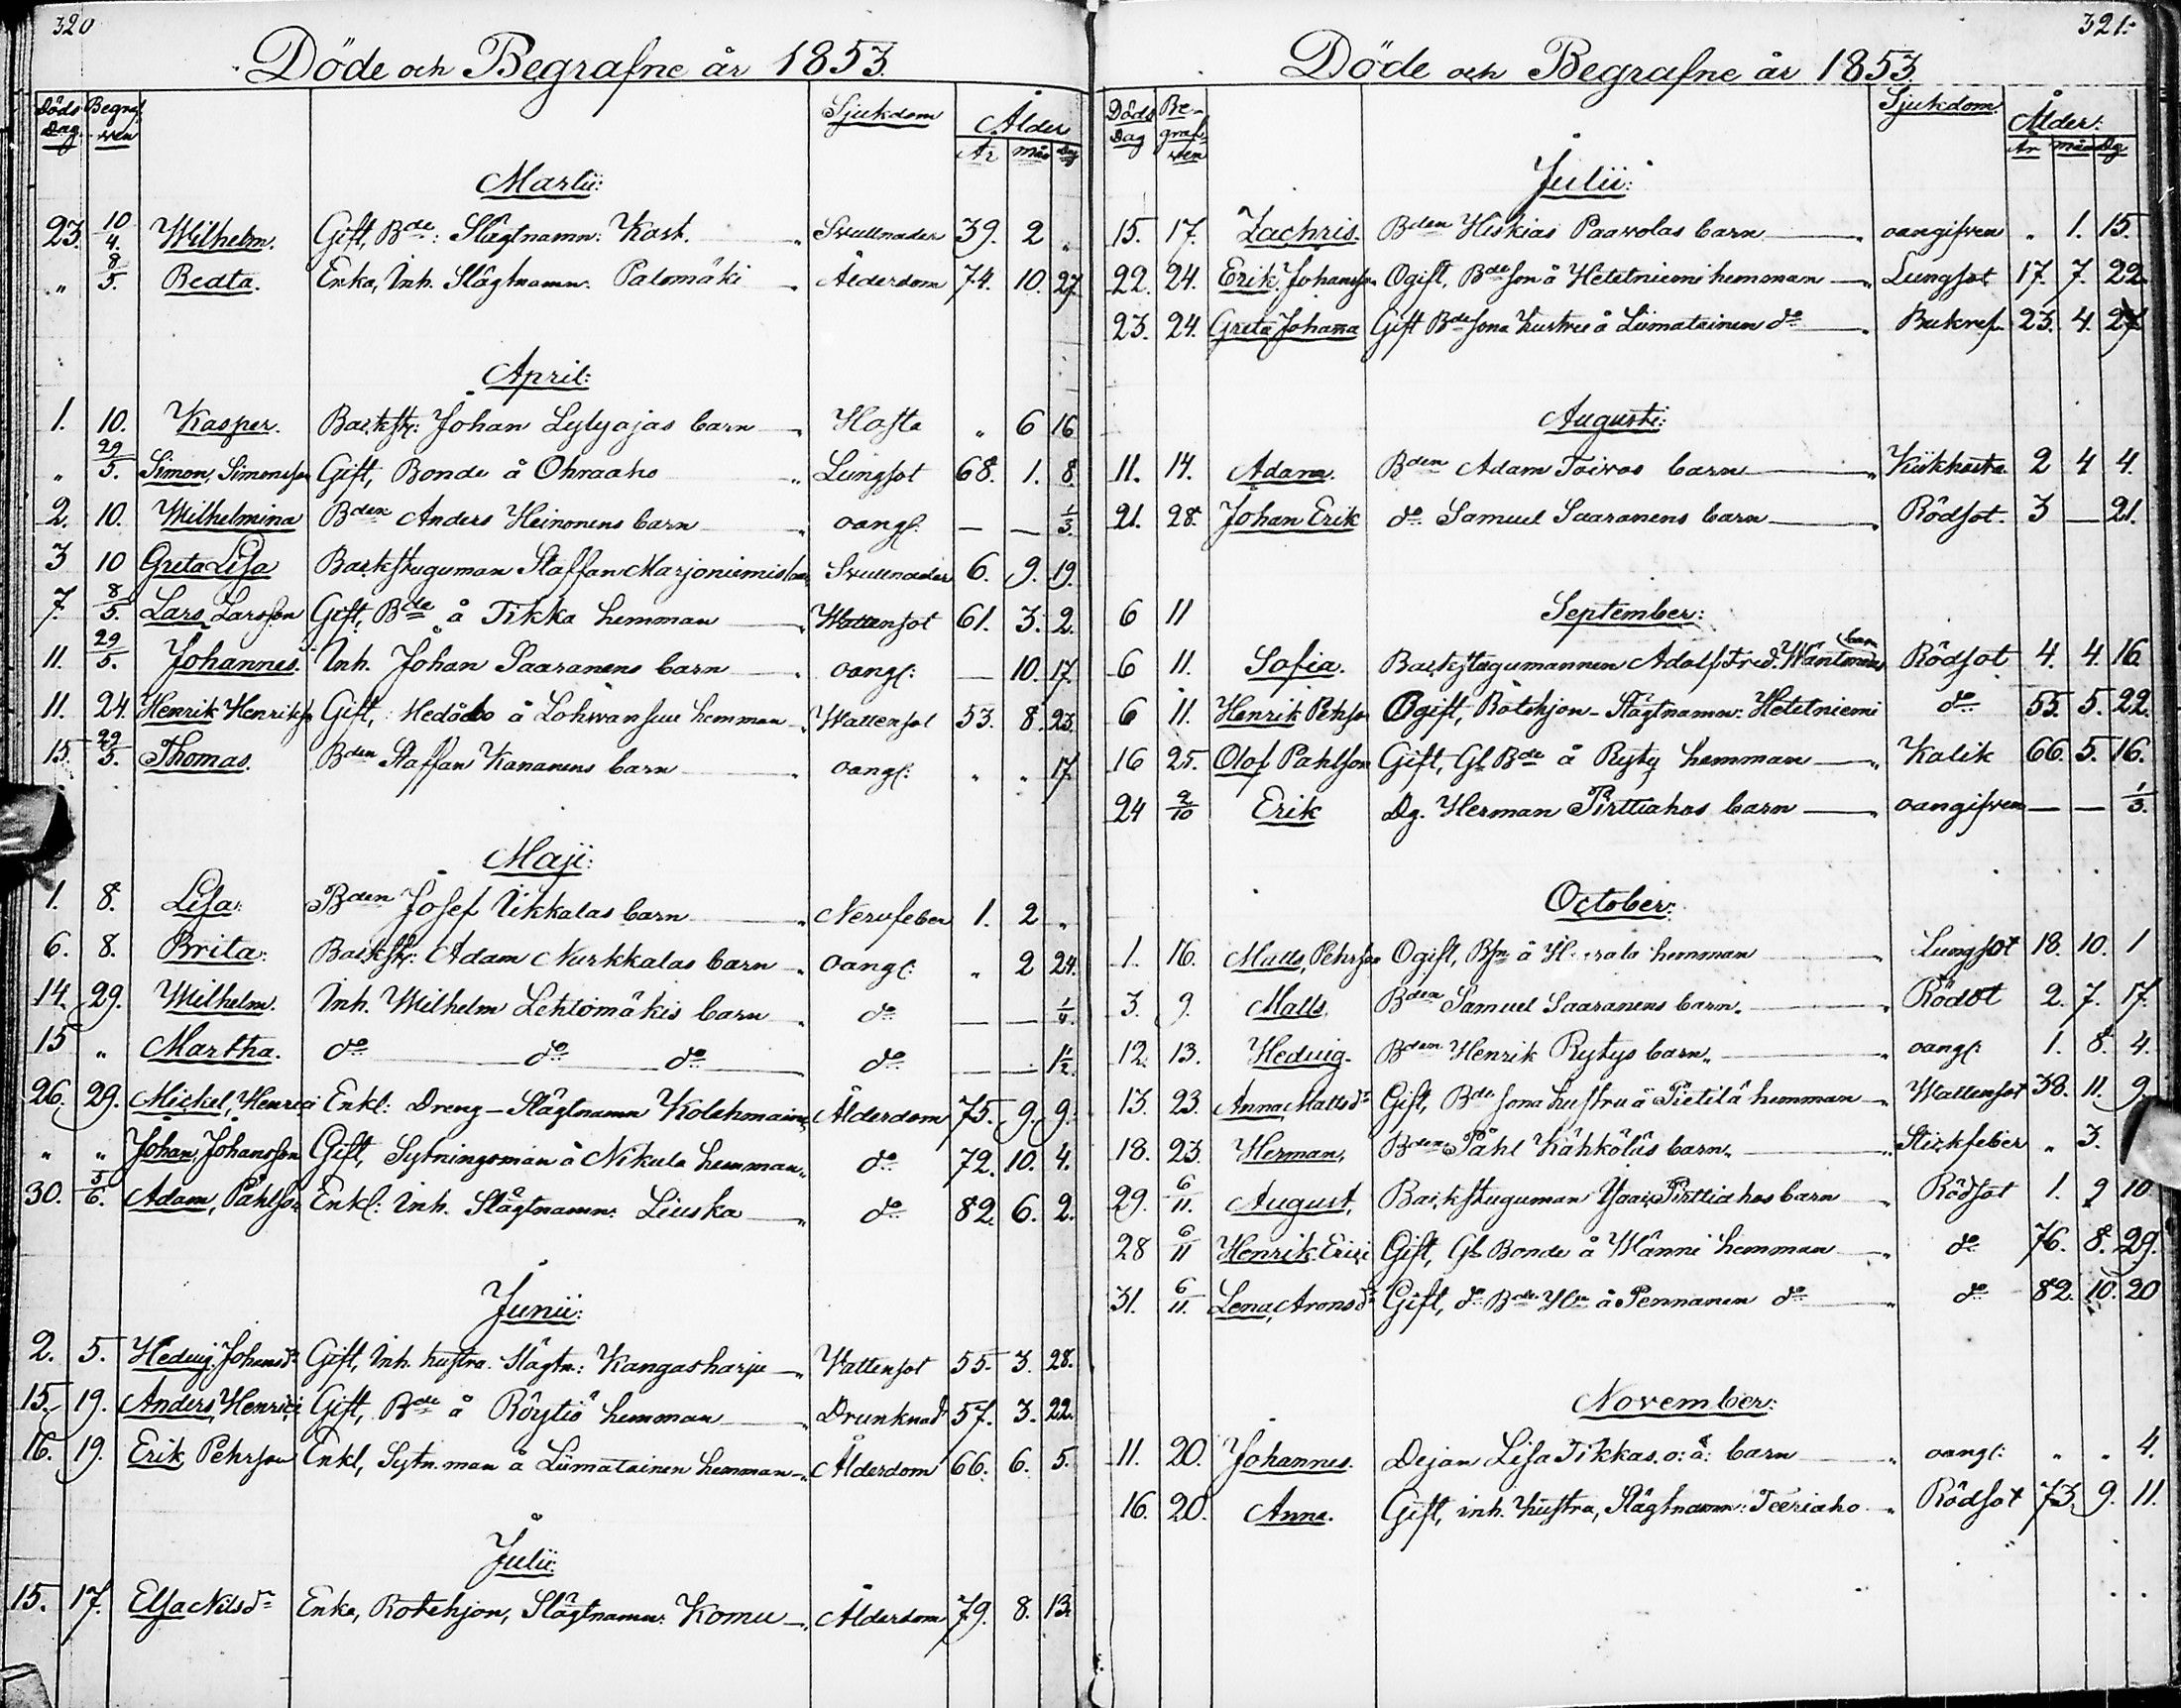 320
Döde och Begrafne år 1853.
Döds Dag Begraf-wen Sjukdom Ålder
År mån Dag
Martii:
23. 10/4. Wilhelm. Gift, Bde: Slägtnamn: Kark. Svullnader 39. 2 "
" 8/5. Beata. Enka, Inh. Slägtnamn: Palomäki Ålderdom 74. 10. 27.
April:
1. 10. Kasper. Backst: Johan Lylyojas barn Hosta " 6 16
" 29/5. Simon, Simonsson Gift, Bonde å Ohraaho Lungsot 68. 1. 8.
2. 10. Wilhelmina Bden Anders Heinonens barn oangf. — — 1/3.
3 10 Greta Lisa Backstuguman Staffan Marjoniemis barn Svullnader 6. 9. 19.
7. 8/5. Lars Larsson Gift, Bde å Tikka hemman Wattensot 61. 3. 2.
11. 29/5. Johannes. Inh. Johan Saaranens barn oangf: — 10. 17.
11. 24. Henrik Henriksson Gift, Medåbo å Lohvansuu hemman Wattensot 53. 8. 23.
15. 29/5. Thomas. Bden Staffan Kananens barn oangf: " " 17.
Maji:
1. 8. Lisa: Bden Josef Ukkalas barn Nervfeber 1. 2 "
6. 8. Brita: Backst: Adam Nurkkalas barn oangf: " 2 24.
14. 29. Wilhelm. Inh. Wilhelm Lehtomäkis barn do — — 1/4.
15 " Martha. do do do do — — 1 1/2.
26. 29. Mickel, Henrici Enkl: Dreng - Slägtnamn Kolehmainen Ålderdom 75. 9. 9.
" " Johan, Johansson Gift, Sytningsman å Nikula hemman do 72. 10. 4.
30. 5/6. Adam, Påhlsson Enkl: Inh. Slägtnamn: Liuska do 82. 6. 2.
Junii:
2. 5. Hedvig Johansdr Gift, Inh. hustru. Slägtn: Kangasharju Wattensot 55. 3. 28.
15. 19. Anders, Henrici Gift, Bde å Röytiö hemman Drunknad 57. 3. 22.
16. 19. Erik Pehrsson Enkl, Sytn.man å Liimatainen hemman Ålderdom 66. 6. 5.
Julii:
15. 17. Elsa Nilsdr Enka, Rotehjon, Slägtnamn: Komu Ålderdom 79. 8. 13.
321.
Döde och Begrafne år 1853.
Döds Dag Be-graf-wen Sjukdom Ålder:
År mån Dg
Julii:
15. 17. Zachris. Bden Hiskias Paavolas barn oangifven " 1. 15.
22. 24. Erik, Johansson Ogift, Bdeson å Hetetniemi hemman Lungsot 17. 7. 22.
23. 24. Greta Johana Gift Bdesons hustru å Liimatainen do Bukref 23. 4. 27
Augusti:
11. 14. Adam. Bden Adam Toivos barn Kikhosta 2 4 4.
21. 28. Johan Erik do Samuel Saaranens barn Rödsot. 3 — 21.
6 11 September:
6 11. Sofia. Backstugumannen Adolf Fred. Wäntmans barn Rödsot 4. 4. 16.
6 11. Henrik Pehrson Ogift, Rotehjon - Slägtnamn: Hetetniemi do 55. 5. 22.
16 25. Olof Pahlson Gift, Gl Bde å Ryty hemman Kolik 66. 5. 16.
24 2/10 Erik Dg. Herman Pirttiahos barn oangifven — — 1/3.
October:
1. 16. Matts, Pehrson Ogift, Bsn å hemman Lungsot 18. 10. 1
3. 9. Matts. Bden Samuel Saaranens barn. Rödsot 2. 7. 17.
12. 13. Hedvig. Bden Henrik Rytys barn. oangf: 1. 8. 4.
13. 23. Anna Mattsdr Gift, Bdesons hustru å Pietilä hemman Wattensot 38. 11. 9.
18. 23. Herman, Bden Påhl Kähköläs barn. Stickfeber " 3.
29. 6/11. August. Backstuguman Isac Pirttiahos barn Rödsot 1. 9 10
28 6/11 Henrik Erici Gift, Gl Bonde å Wänni hemman do 76. 8. 29.
31. 6/11. Lena, Aronsdr Gift, do Bde Hu å Pennanen do do 82. 10. 20
November:
11. 20. Johannes. Dejan Lisa Tikkas. o: ä: barn oangf: " " 4.
16. 20. Anna. Gift, inh. hustru, Slägtnamn: Teeriaho Rödsot 73. 9. 11.